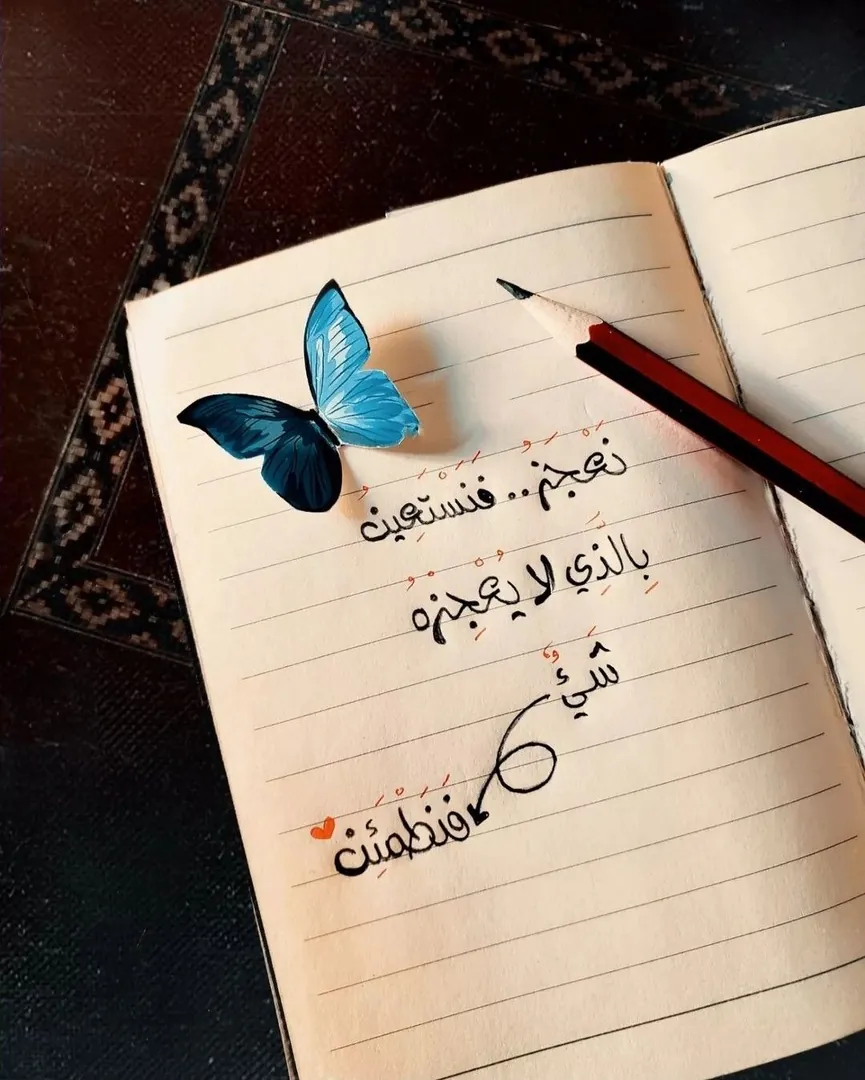 نعجز.. فنستعين
بالذي لا يعجزه
شيء
فنطمئن